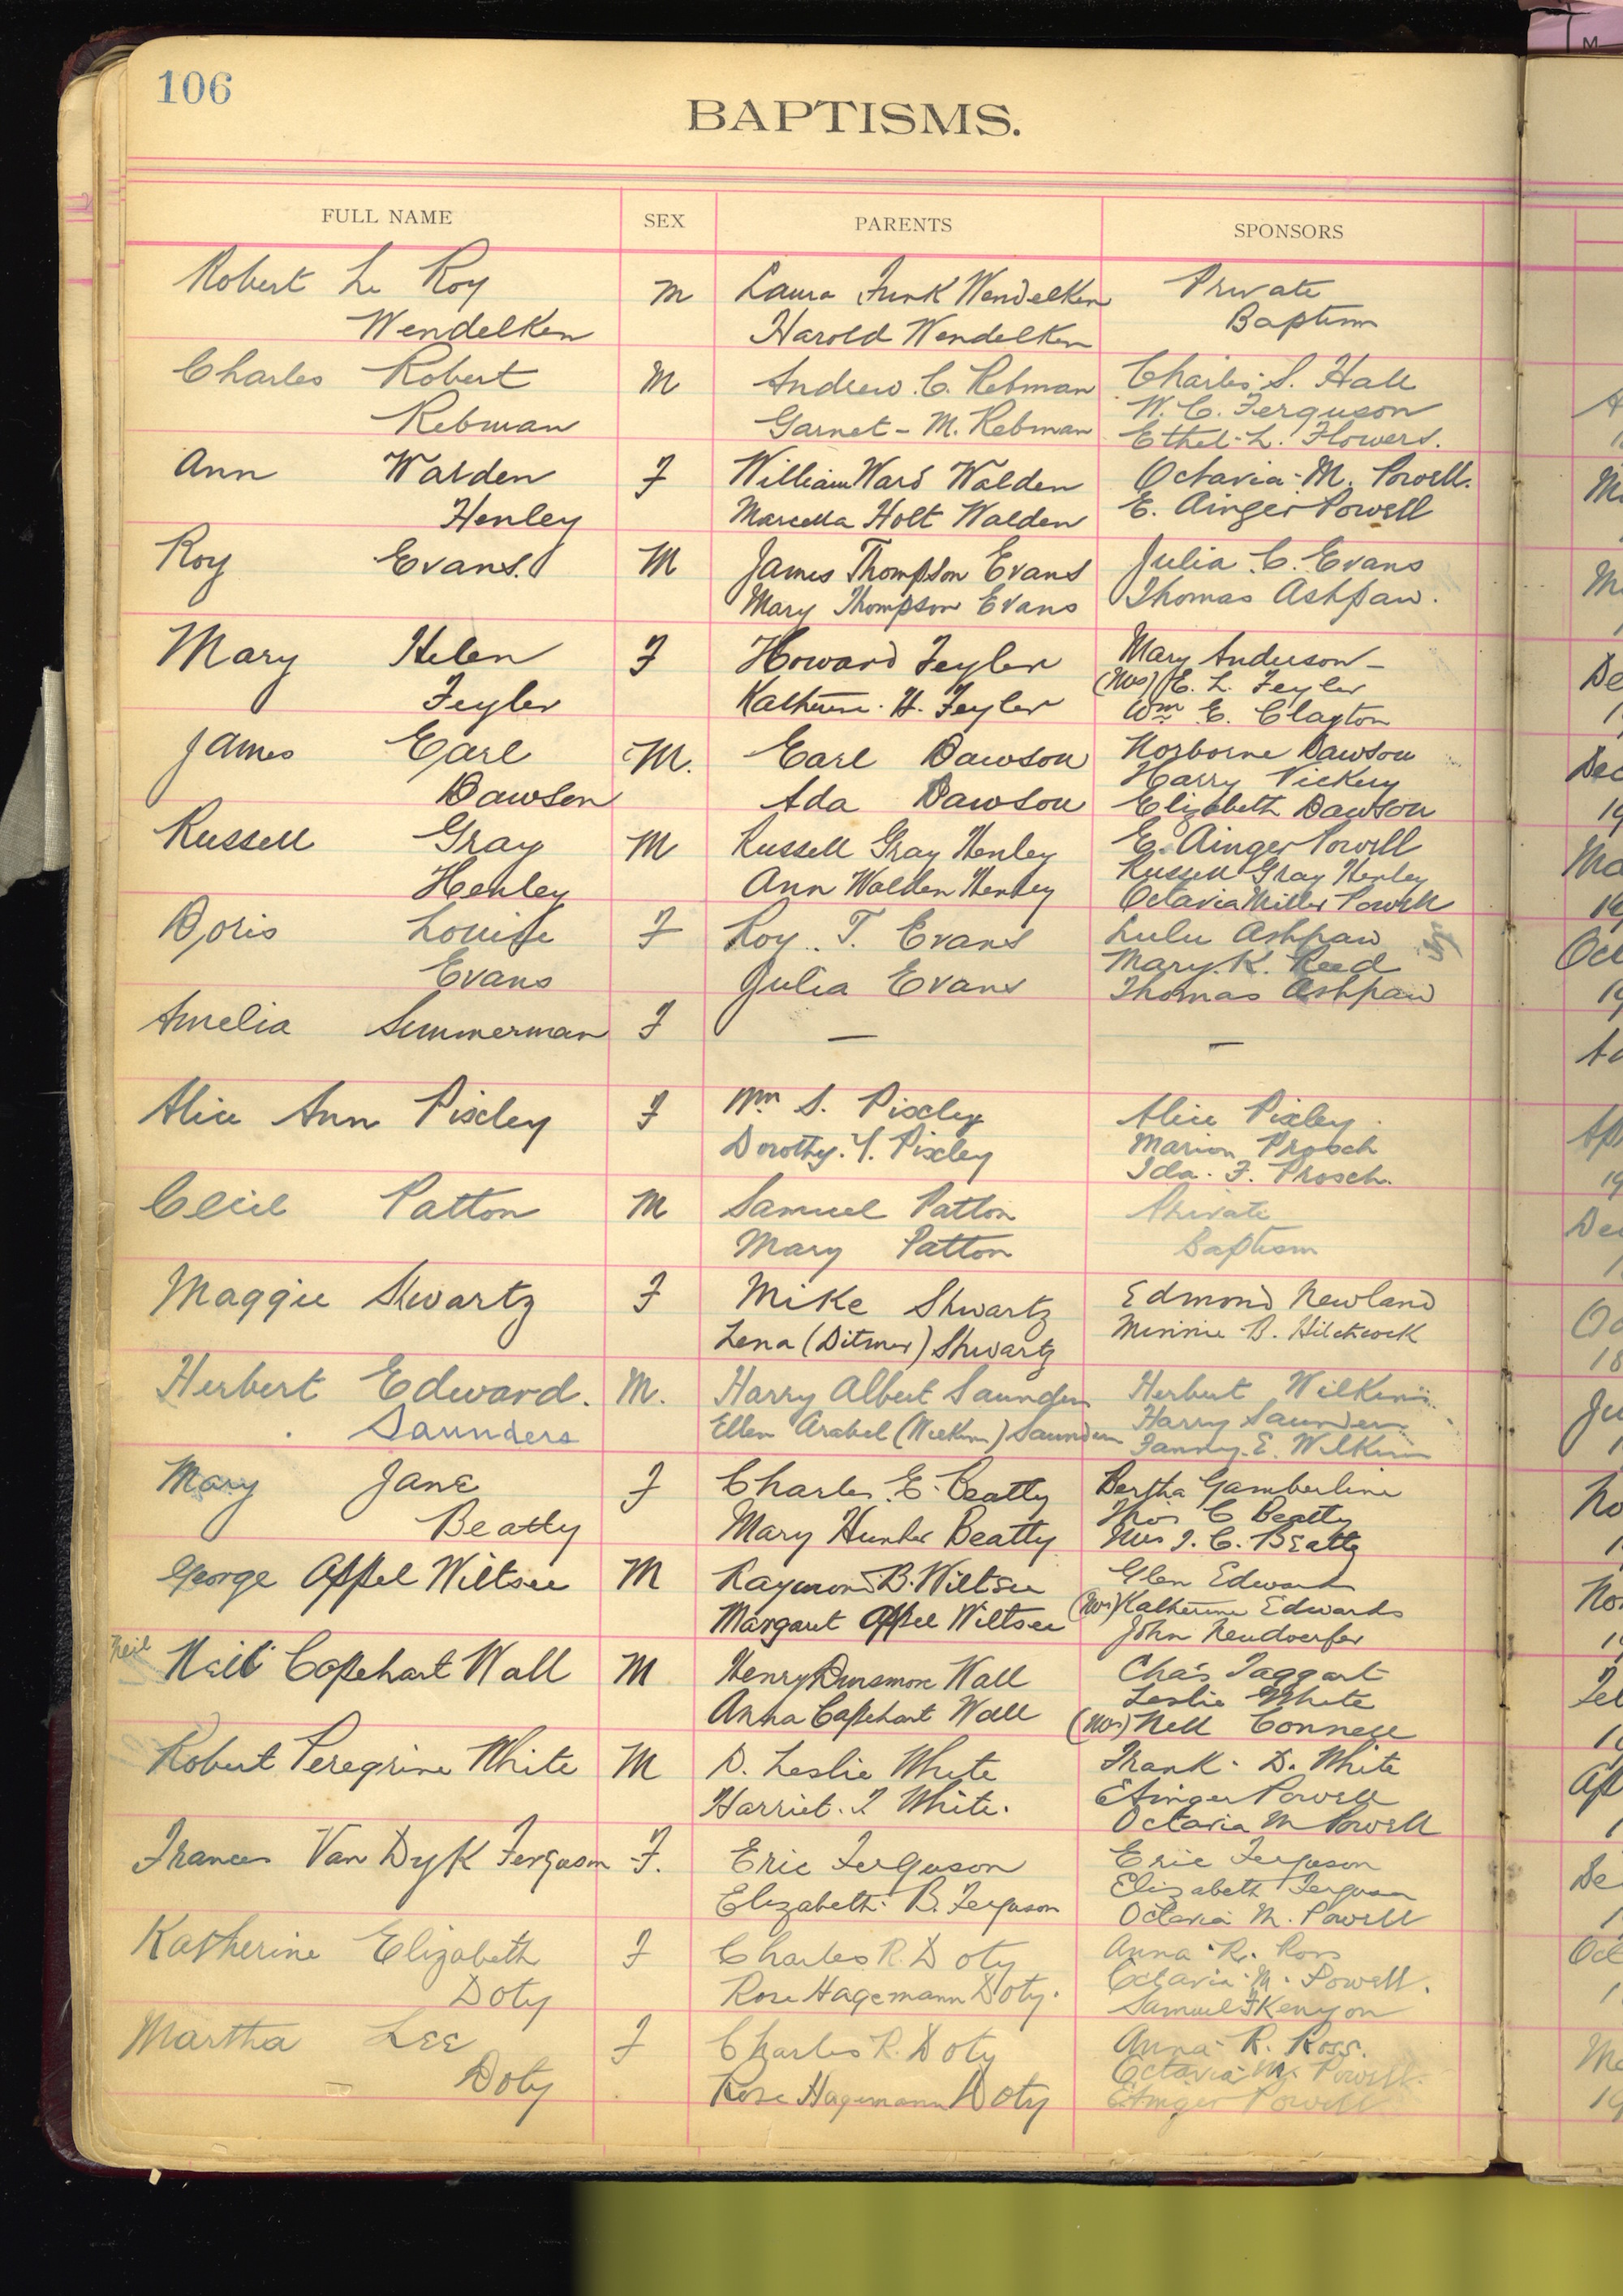 106
BAPTISMS.
FULL NAME SEX PARENTS SPONSORS
Robert Le Roy M Laura Funk Wendelken Private
Wendelken Harold Wendelken Baptism
Charles Robert M Andrew C. Rebman Charles S. Hall
W. C. Ferguson
Rebman Garnet - M. Rebman Ethel - L. Flowers.
Ann Walden F William Ward Walden Octavia - M. Powell.
Henley Marcella Holt Walden E. Ainger Powell
Roy Evans. M James Thompson Evans Julia C. Evans
Mary Thompson Evans Thomas Ashpaw.
Mary Helen F Howard Feyler Mary Anderson -
(Mrs) E. L. Feyler
Feyler Katherine. H. Feyler Wm E. Clayton
James Earl M. Earl Dawson Norborne Dawson
Harry Vickery
Dawson Ada Dawson Elizabeth Dawson
Russell Gray M Russell Gray Henley E. Ainger Powell
Russell Gray Henley
Henley Ann Walden Henley Octavia Miller Powell
Doris Louise F Roy. T. Evans Lulu Ashpaw
Mary. K. Reed
Evans Julia Evans Thomas Ashpaw
Amelia Summerman F — —
Alice Ann Pixley F Wm S. Pixley Alice Pixley.
Dorothy. Y. Pixley Marion Prosch
Ida. F. Prosch.
Cecil Patton M Samuel Patton Private
Mary Patton Baptism
Maggie Shwartz F Mike Shwartz Edmond Newland
Lena (Ditmer) Shwartz Minnie B. Hitchcock
Herbert Edward. M. Harry Albert Saunders Herbert Wilkins.
Harry Saunders
Saunders Ellen Arabel Saunders Fanny. E. Wilkins
Mary Jane F Charles. E. Beatty Bertha Gamberline
C Beatty
Beatty Mary Hunter Beatty Mrs I. C. Beatty
George Appel Wiltsee M Raymond B. Wiltsee Glen Edwards
(Mrs) Katherine Edwards
Margaret Appel Wiltsee John Neudoerfer
Neil
Neil Capehart Wall M Henry Dunsmore Wall Chas Taggart
Leslie White
Anna Capehart Wall (Mrs) Nell Connell
Robert Peregrine White M D. Leslie White Frank. D. White
EAinger Powell
Harriet. I White. Octavia M Powell
Frances Van Dyk Ferguson F. Eric Ferguson Eric Ferguson
Elizabeth Ferguson
Elizabeth. B. Ferguson Octavia M. Powell
Katherine Elizabeth F Charles R. Doty Anna R. Ross
Octavia M. Powell.
Doty Rose Hagemann Doty. Samuel F Kenyon
Martha Lee F Charles R. Doty Anna R. Ross.
Octavia M. Powell.
Doty Rose Hagemann Doty EAinger Powell